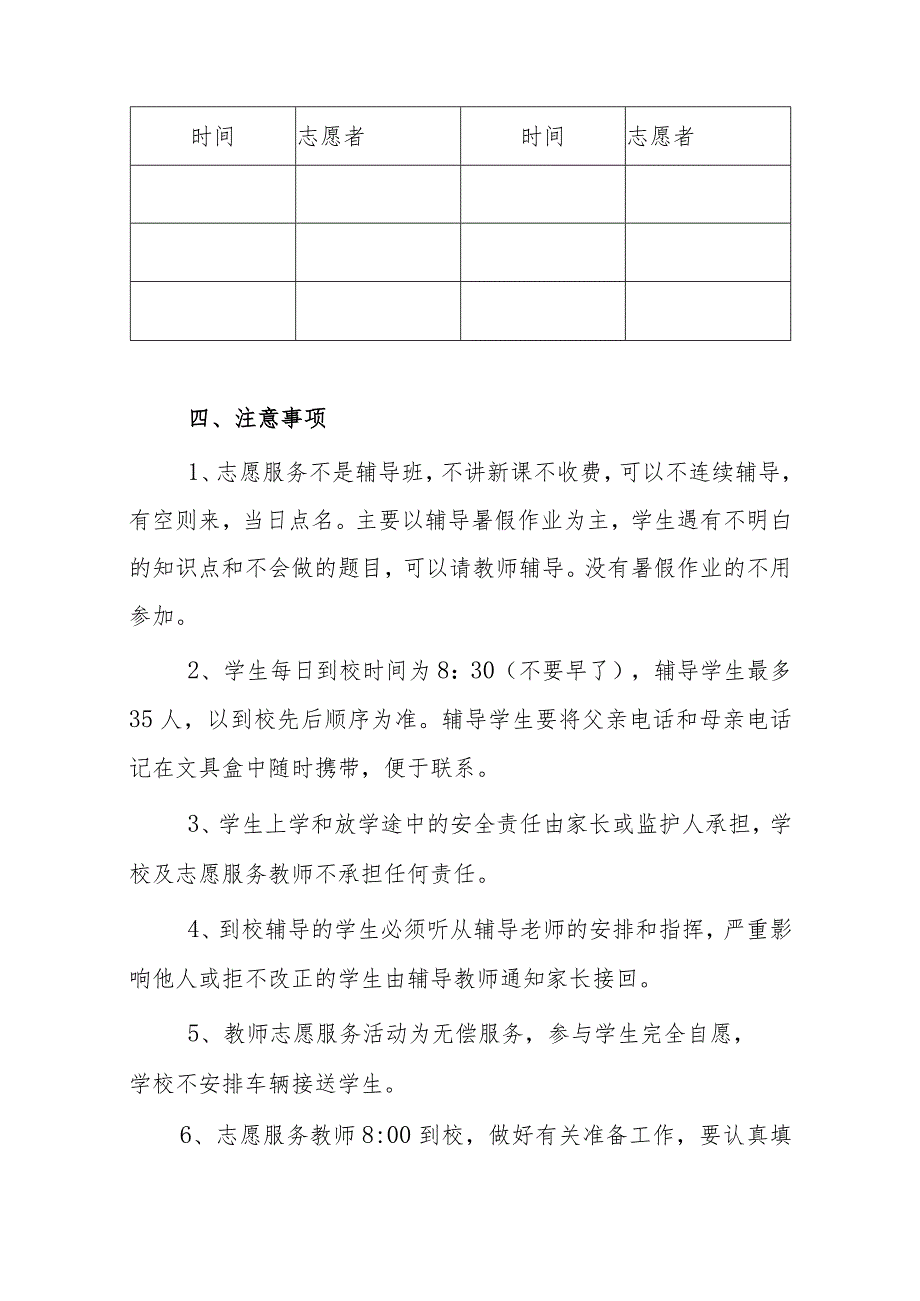 时间 志愿者 时间 志愿者
四、注意事项
1、志愿服务不是辅导班，不讲新课不收费，可以不连续辅导，
有空则来，当日点名。主要以辅导暑假作业为主，学生遇有不明白
的知识点和不会做的题目，可以请教师辅导。没有暑假作业的不用
参加。
2、学生每日到校时间为8：30（不要早了），辅导学生最多
35人，以到校先后顺序为准。辅导学生要将父亲电话和母亲电话
记在文具盒中随时携带，便于联系。
3、学生上学和放学途中的安全责任由家长或监护人承担，学
校及志愿服务教师不承担任何责任。
4、到校辅导的学生必须听从辅导老师的安排和指挥，严重影
响他人或拒不改正的学生由辅导教师通知家长接回。
5、教师志愿服务活动为无偿服务，参与学生完全自愿，
学校不安排车辆接送学生。
6、志愿服务教师8:00到校，做好有关准备工作，要认真填